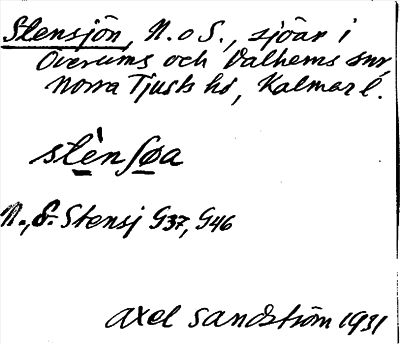 Stensjön, N. o S., sjöar i
Överums och Dalhems snr
Norra Tjusts hd, Kalmar l.
stènʃøa
N., S. Stensj G37, G46
Axel Sandström 1931